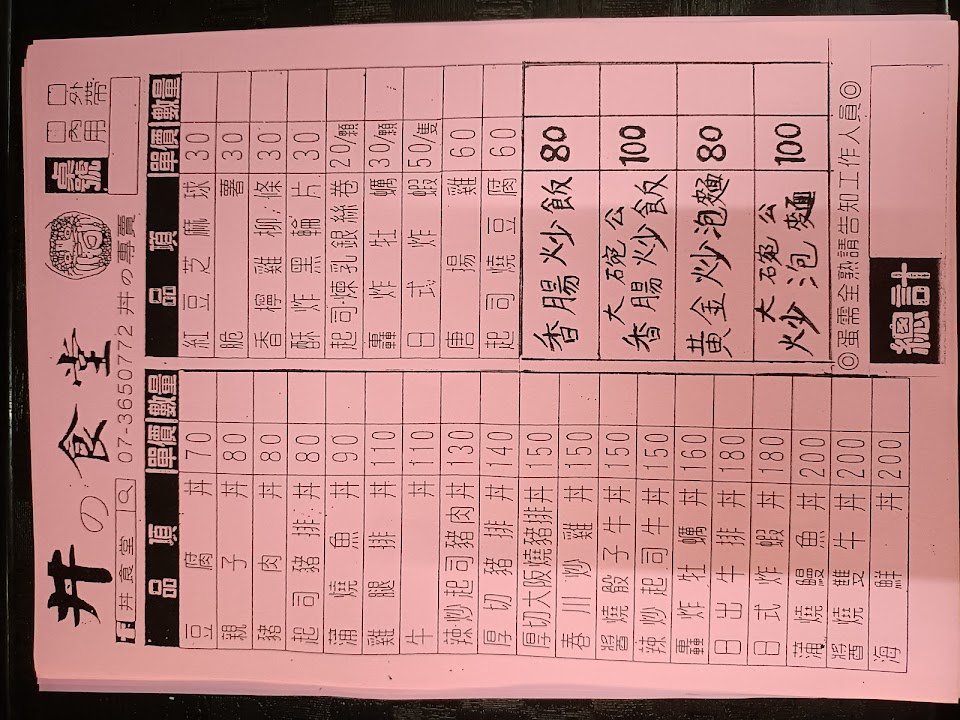 丼の食堂
f 丼食堂
07-3650772 丼の專賣
桌號
□內用
□外帶
品項 單價 數量
豆腐丼 70
親子丼 80
豬肉丼 80
起司豬排丼 80
蒲燒魚丼 90
雞腿排丼 110
牛丼 110
辣炒起司豬肉丼 130
厚切豬排丼 140
厚切大阪燒豬排丼 150
春川炒雞丼 150
醬燒骰子牛丼 150
辣炒起司牛丼 150
轟炸牡蠣丼 160
日出牛排丼 180
日式炸蝦丼 180
蒲燒鰻魚丼 200
醬燒雙牛丼 200
海鮮丼 200
品項 單價 數量
紅豆芝麻球 30
脆薯 30
香檸雞柳條 30
酥炸黑輪片 30
起司·煉乳銀絲卷 20/顆
轟炸牡蠣 30/顆
日式炸蝦 50/隻
唐揚雞 60
起司燒豆腐 60
香腸炒飯 80
大碗公香腸炒飯 100
黃金炒泡麵 80
大碗公炒泡麵 100
◎蛋需全熟請告知工作人員◎
總計